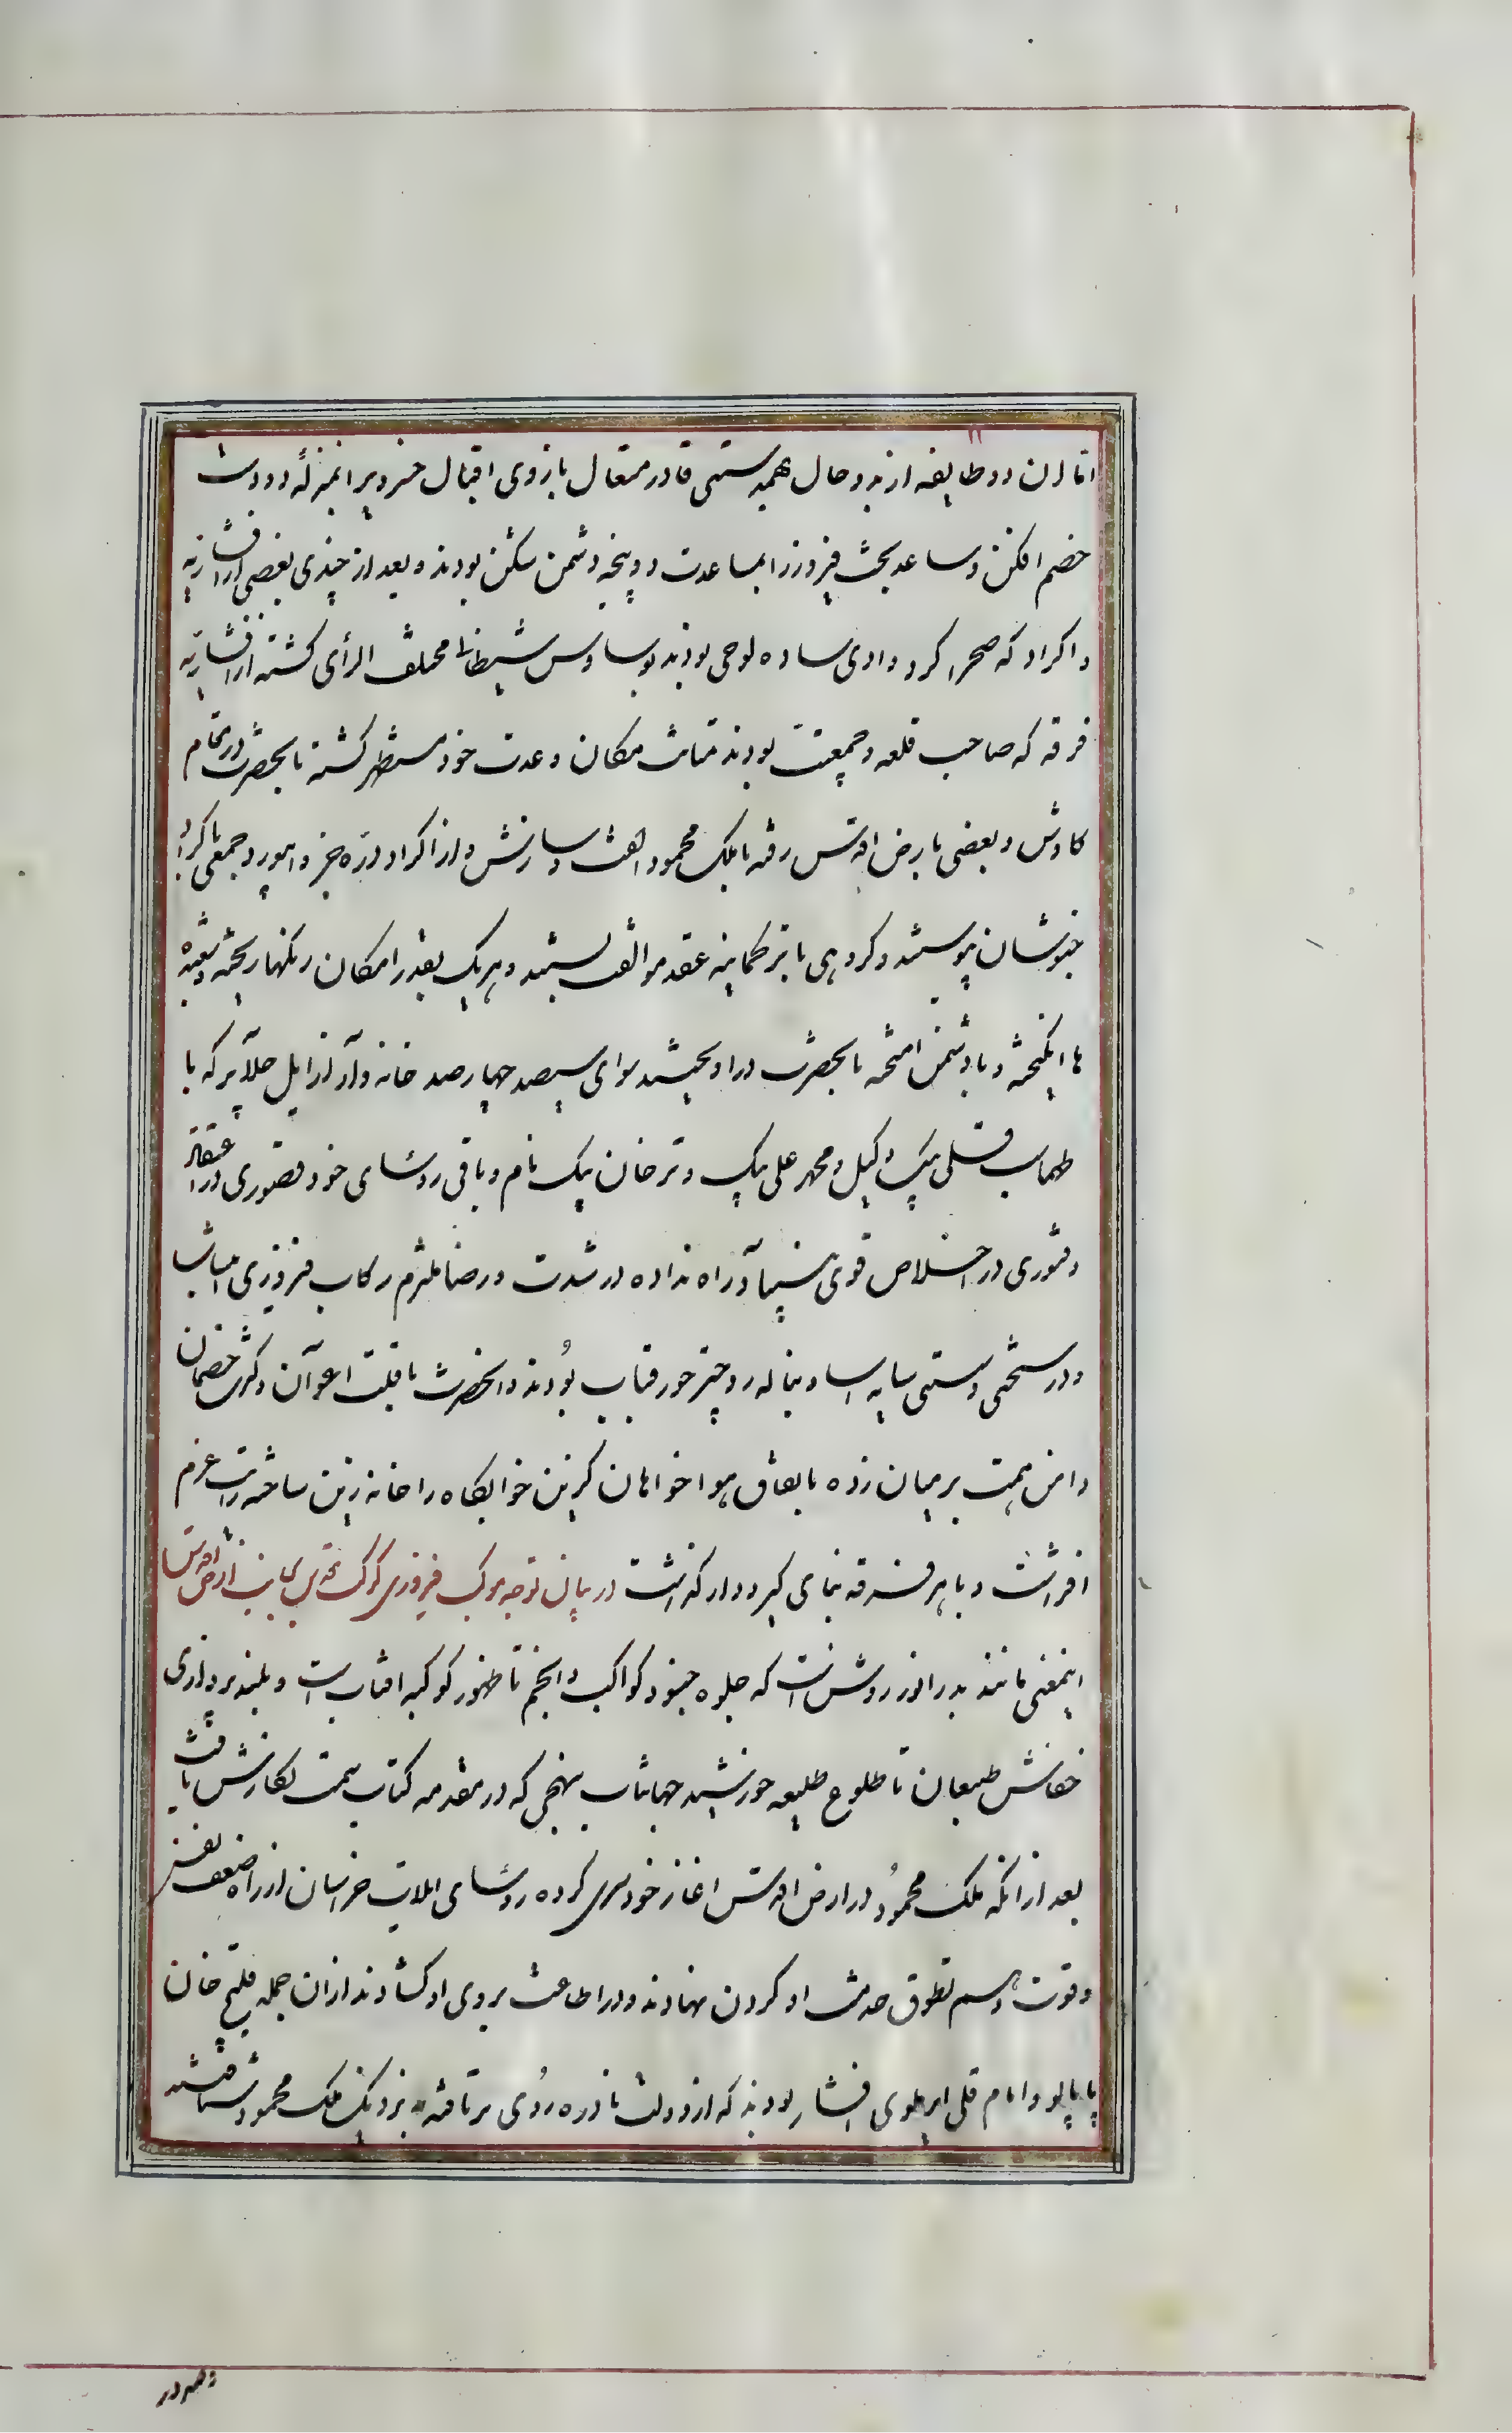 اما ان دو طایفه از بدو حال بهمدستی قادر متعال بازوی اقبال خسرویرا بمنزلهٔ دو دست
خصم افکن و ساعد بخت فیروز را بمساعدت دو پنجه دشمن شکن بودند و بعد از چندی بعضی از افشاریه
و اکراد که صحرا کرد وادی ساده لوحی بودند بوساوس شیطانی مختلف الرأی کشته از افشاریه
فرقه که صاحب قلعه و جمعیت بودند متانت مکان و عدت خود مستظهر کشته با نحضرت در مقام
کاوش و بعضی بارض اقدس رفته با ملک محمود الفت و سازش و از اکراد دره جز و ابیورد جمعی باکراد
خبوشان پیوستند و کروهی با ترکمانیه عقد موالفت بستند و هر یک بقدر امکان رنکها ریخته و شعبده
ها انکیخته و با دشمن امیخته با نحضرت در اویختند سوای سیصد چهارصد خانه وار از ایل جلایر که با
طهماسب قلی بیک وکیل و محمد علی بیک و ترخان بیک نام و باقی رؤسای خود قصوری در اعتقاد
و فتوری در اخلاص قوی بنیاد راه نداده در شدت و رخا ملتزم رکاب فیروزی انتساب
و در سختی و سستی سایه اسا دنباله رو چتر خور قباب بودند و انحضرت با قلت اعوان و کثرت خصمان
دامن همت بر میان زده باتفاق هوا خواهان کزین خوابکاه را خانه زین ساخته رایت عزم
افراشت و با هر فرقه بنای کیر و دار کذاشت در بیان توجه موکب فیروزی کوکبه بجانب ارض اقدس
اینمعنی مانند بدر انور روشن است که جلوه جنود کواکب و انجم تا ظهور کوکبه افتاب است و بلند پروازی
خفاش طبیعان تا طلوع طلیعه خورشید جهانتاب بنهجی که در مقدمه کتاب سمت نکارش یافت
بعد از انکه ملک محمود در ارض اقدس اغاز خودسری کرده رؤسای ایلات خراسان از راه ضعف نفس
و قوت وهم بطوق خدمت او کردن نهادند و در اطاعت بروی او کشادند از ان جمله قلیچ خان
پاپالو و امام قلی ایرلوی افشار بودند که از دولت نادره روی برتافته بنزدیک ملک محمود شتافتند
و هم در